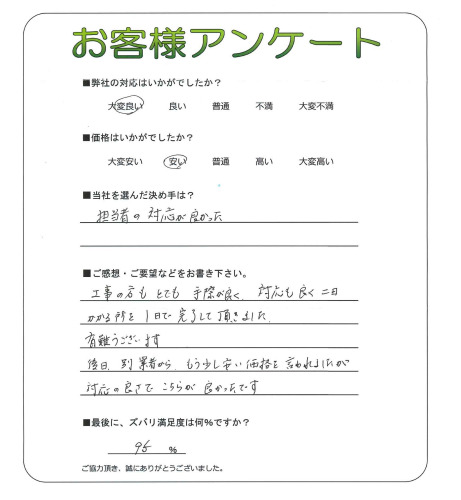 お客様アンケート
■弊社の対応はいかがでしたか？
大変良い 良い 普通 不満 大変不満
■価格はいかがでしたか？
大変安い 安い 普通 高い 大変高い
■当社を選んだ決め手は？
担当者の対応が良かった
■ご感想・ご要望などをお書き下さい。
工事の方も とても 手際が良く、対応も良く 二日
かかる所を 1日で 完了して 頂きました
有難うございます
後日、別業者から、もう少し安い価格を 言われましたが
対応の良さで こちらが 良かったです
■最後に、ズバリ満足度は何%ですか？
95 %
ご協力頂き、誠にありがとうございました。